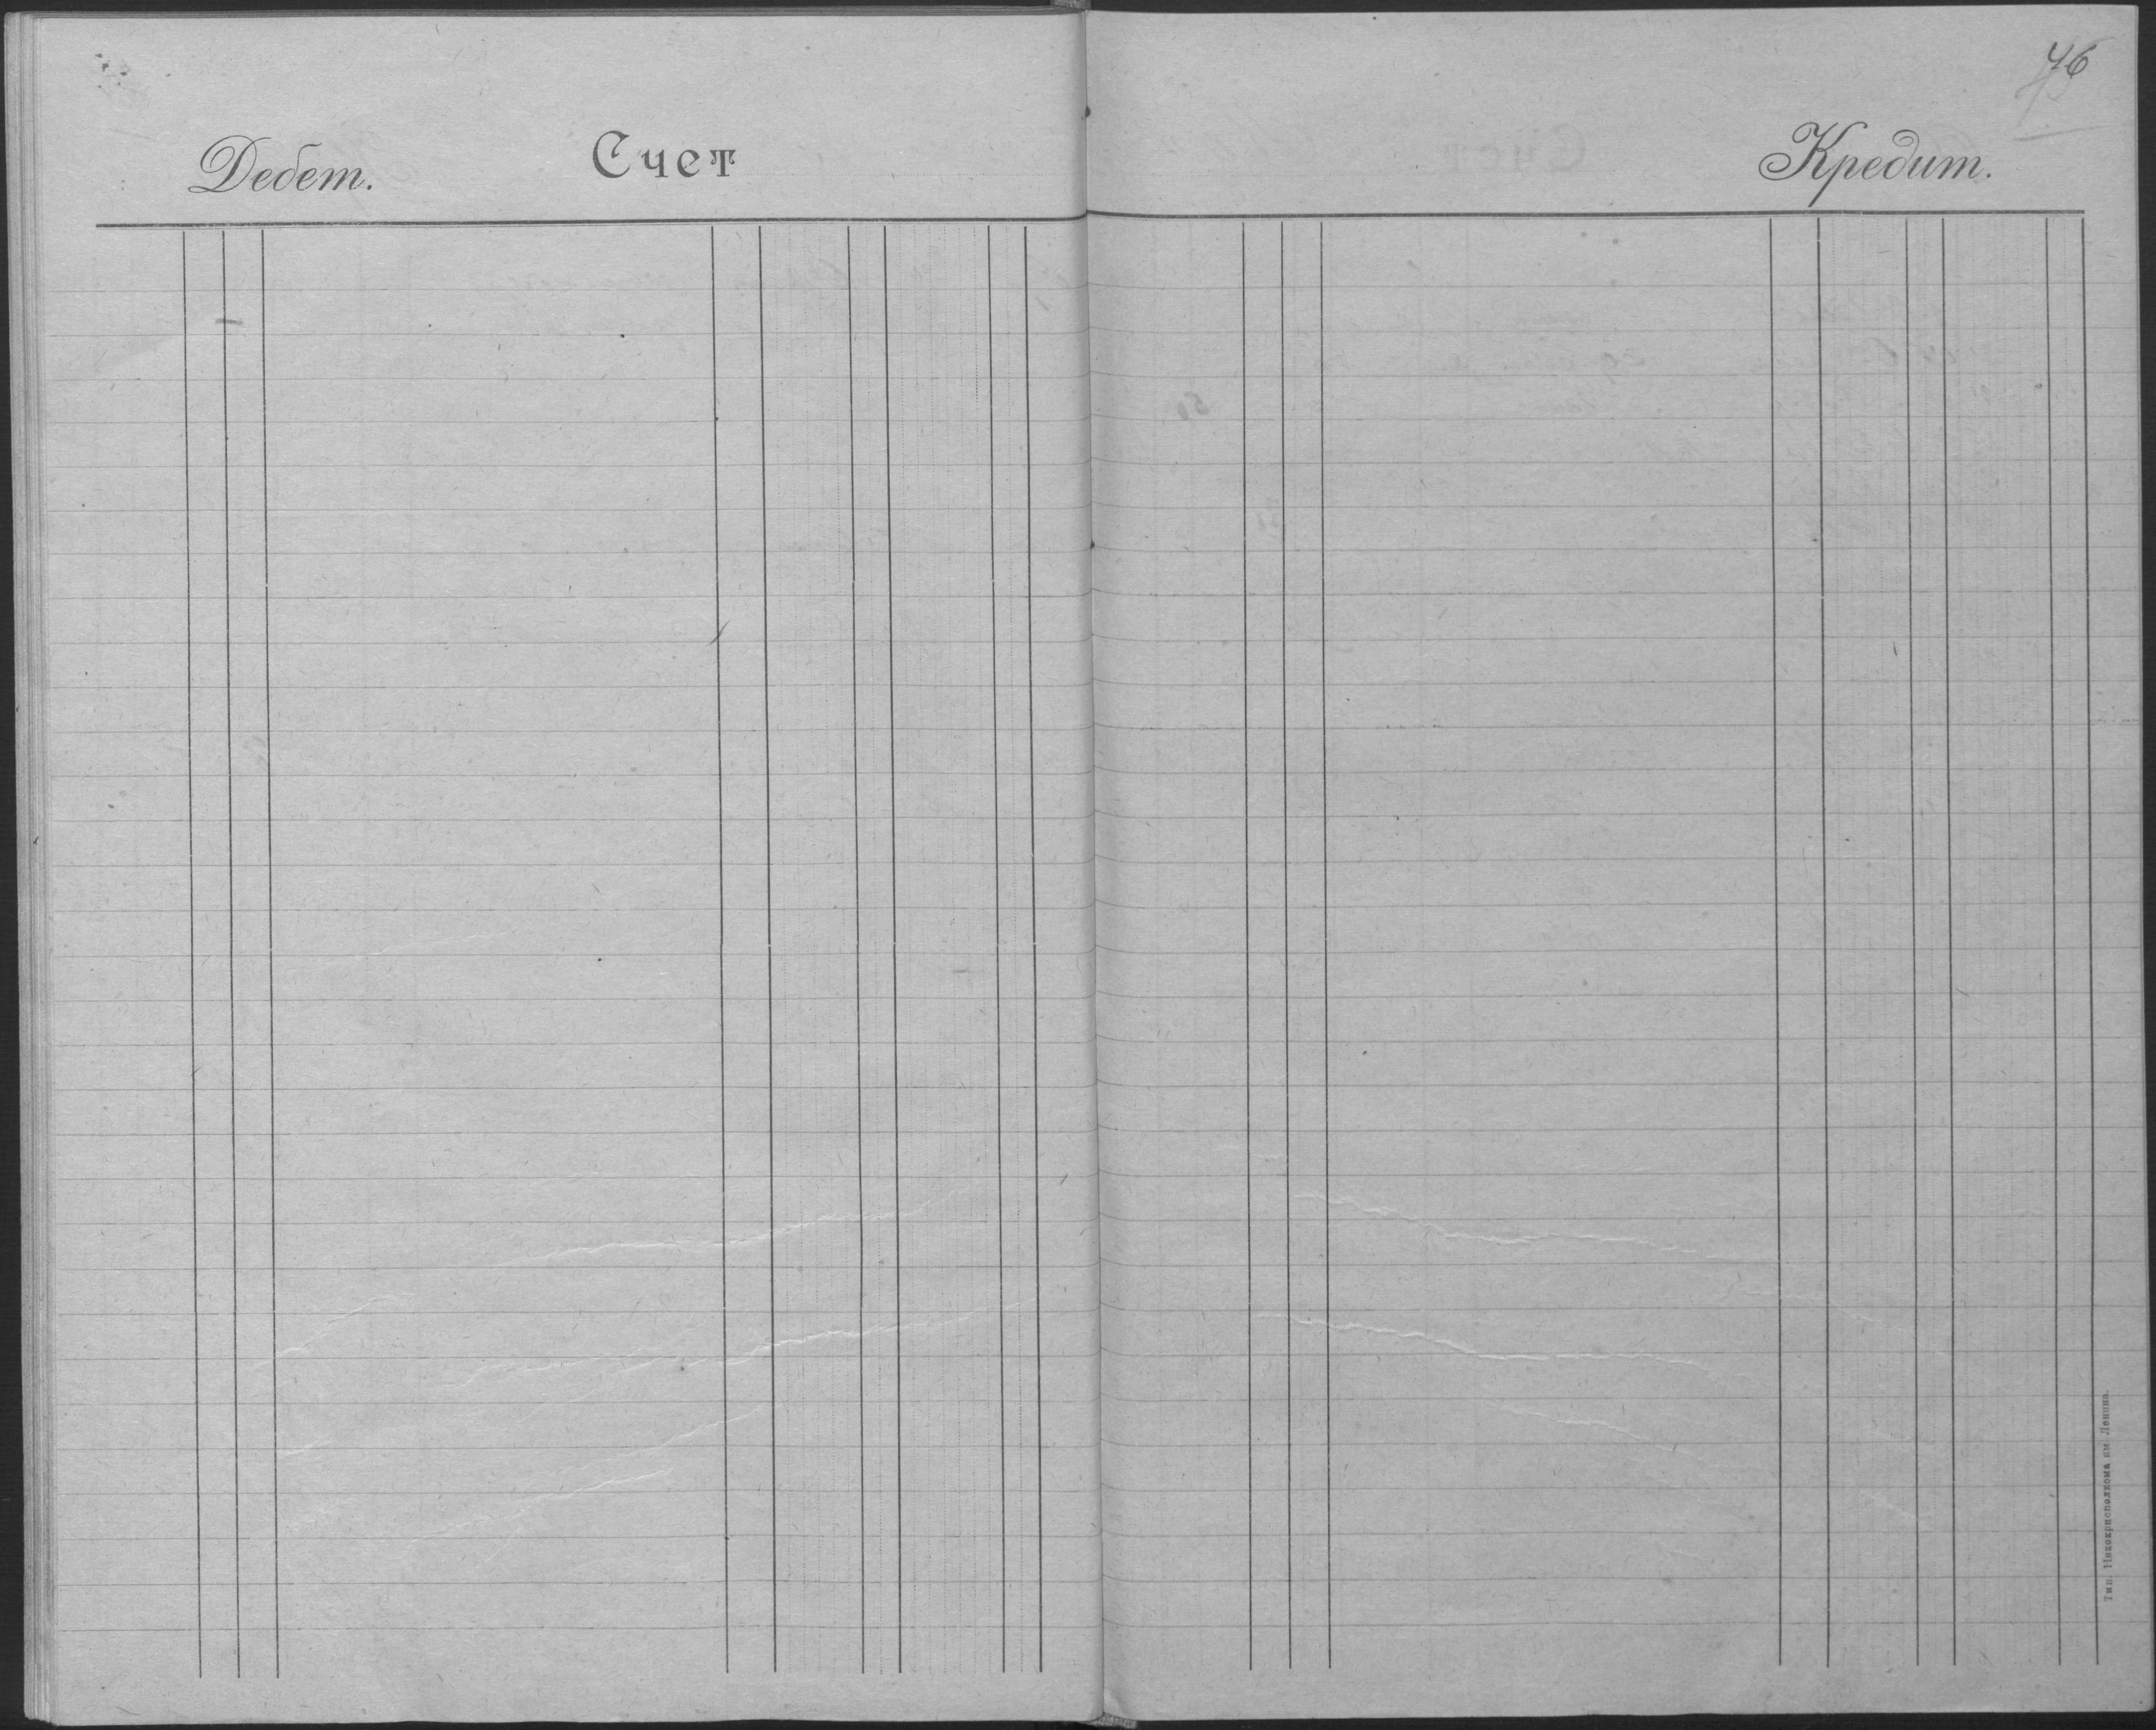 46
Дебет.
Счет
Кредит.
Тип. Никокрисполкома им. Ленина.